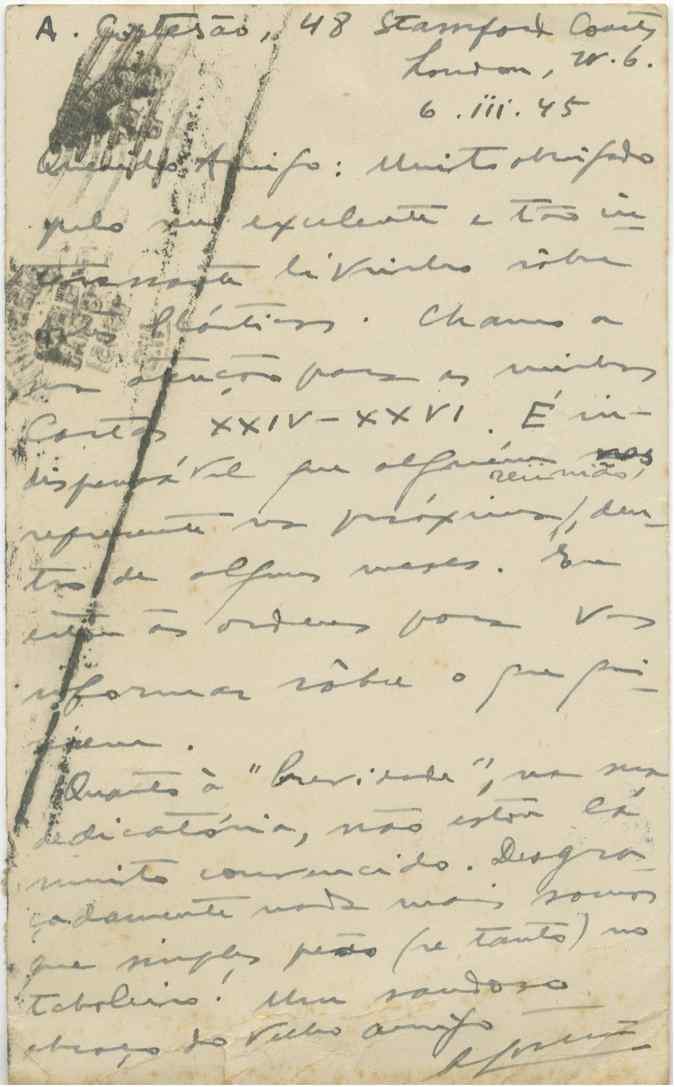 A. Cortesão, 48 Stamford Court,
London, W.6.
6.III.45
Querido Amigo: Muito obrigado
pelo seu excelente e tão in-
teressante livrinho sôbre
Plásticos. Chamo a
sua atenção para as minhas
Cartas XXIV-XXVI. É in-
dispensável que alguém nos
represente na próxima reünião, den-
tro de alguns meses. Eu
estou às ordens para vos
informar sôbre o que qui-
serem.
Quanto à "brevidade", na sua
dedicatória, não estou lá
muito convencido. Desgra-
çadamente nada mais somos
que simples peão (se tanto) no
taboleiro! Um saudoso
abraço do velho amigo